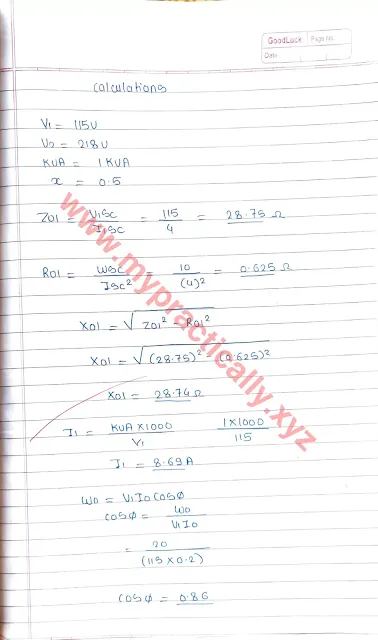 GoodLuck Page No.
Date
Calculations
V1 = 115V
V2 = 218V
KVA = 1 KVA
x = 0.5
Z01 = V1SC / I1SC = 115 / 4 = 28.75 Ω
R01 = WSC / ISC² = 10 / (4)² = 0.625 Ω
X01 = √ Z01² - R01²
X01 = √ (28.75)² - (0.625)²
X01 = 28.74 Ω
I1 = KVA X1000 / V1 1X1000 / 115
I1 = 8.69A
W0 = V1 I0 COSϕ
COSϕ = W0 / V1 I0
= 20 / (115 X 0.2)
COSϕ = 0.86
www.mypractically.xyz